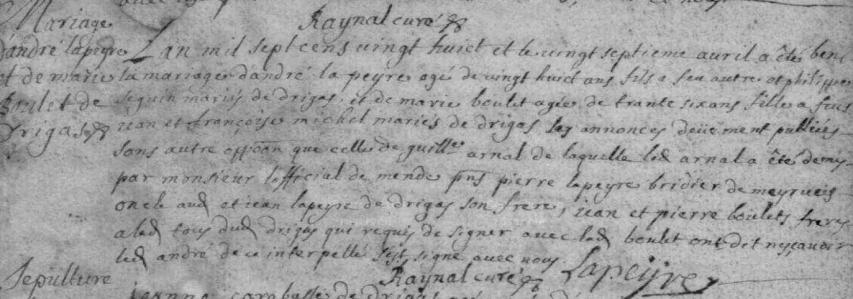 Mariage
Raynal curé
d'andré lapeyre
et de marie
Boulet de
Drigas
Lan mil sept cens vingt huict et le vingt septieme avril a été beni
la mariage d'andré la peyre agé de vingt huict ans fils a feu autre et philippe
seguin mariés de drigas, et de marie boulet agée de trante six ans fille a feus
jean et francoise michel mariés de drigas les annonces deüement publiées
sans autre oppoan que celle de guille arnal de laquelle led arnal a été demis
par monsieur l'official de mende pns pierre lapeyre bridier de meyrueis
oncle aud et jean lapeyre de drigas son frere, jean et pierre boulets freres
a lad tous dud drigas qui requis de signer avec lad boulet ont dit ne scavoir
led andré de ce interpellé s'est signé avec nous
Raynal curé
Lapeyre
Sepulture
de drigas